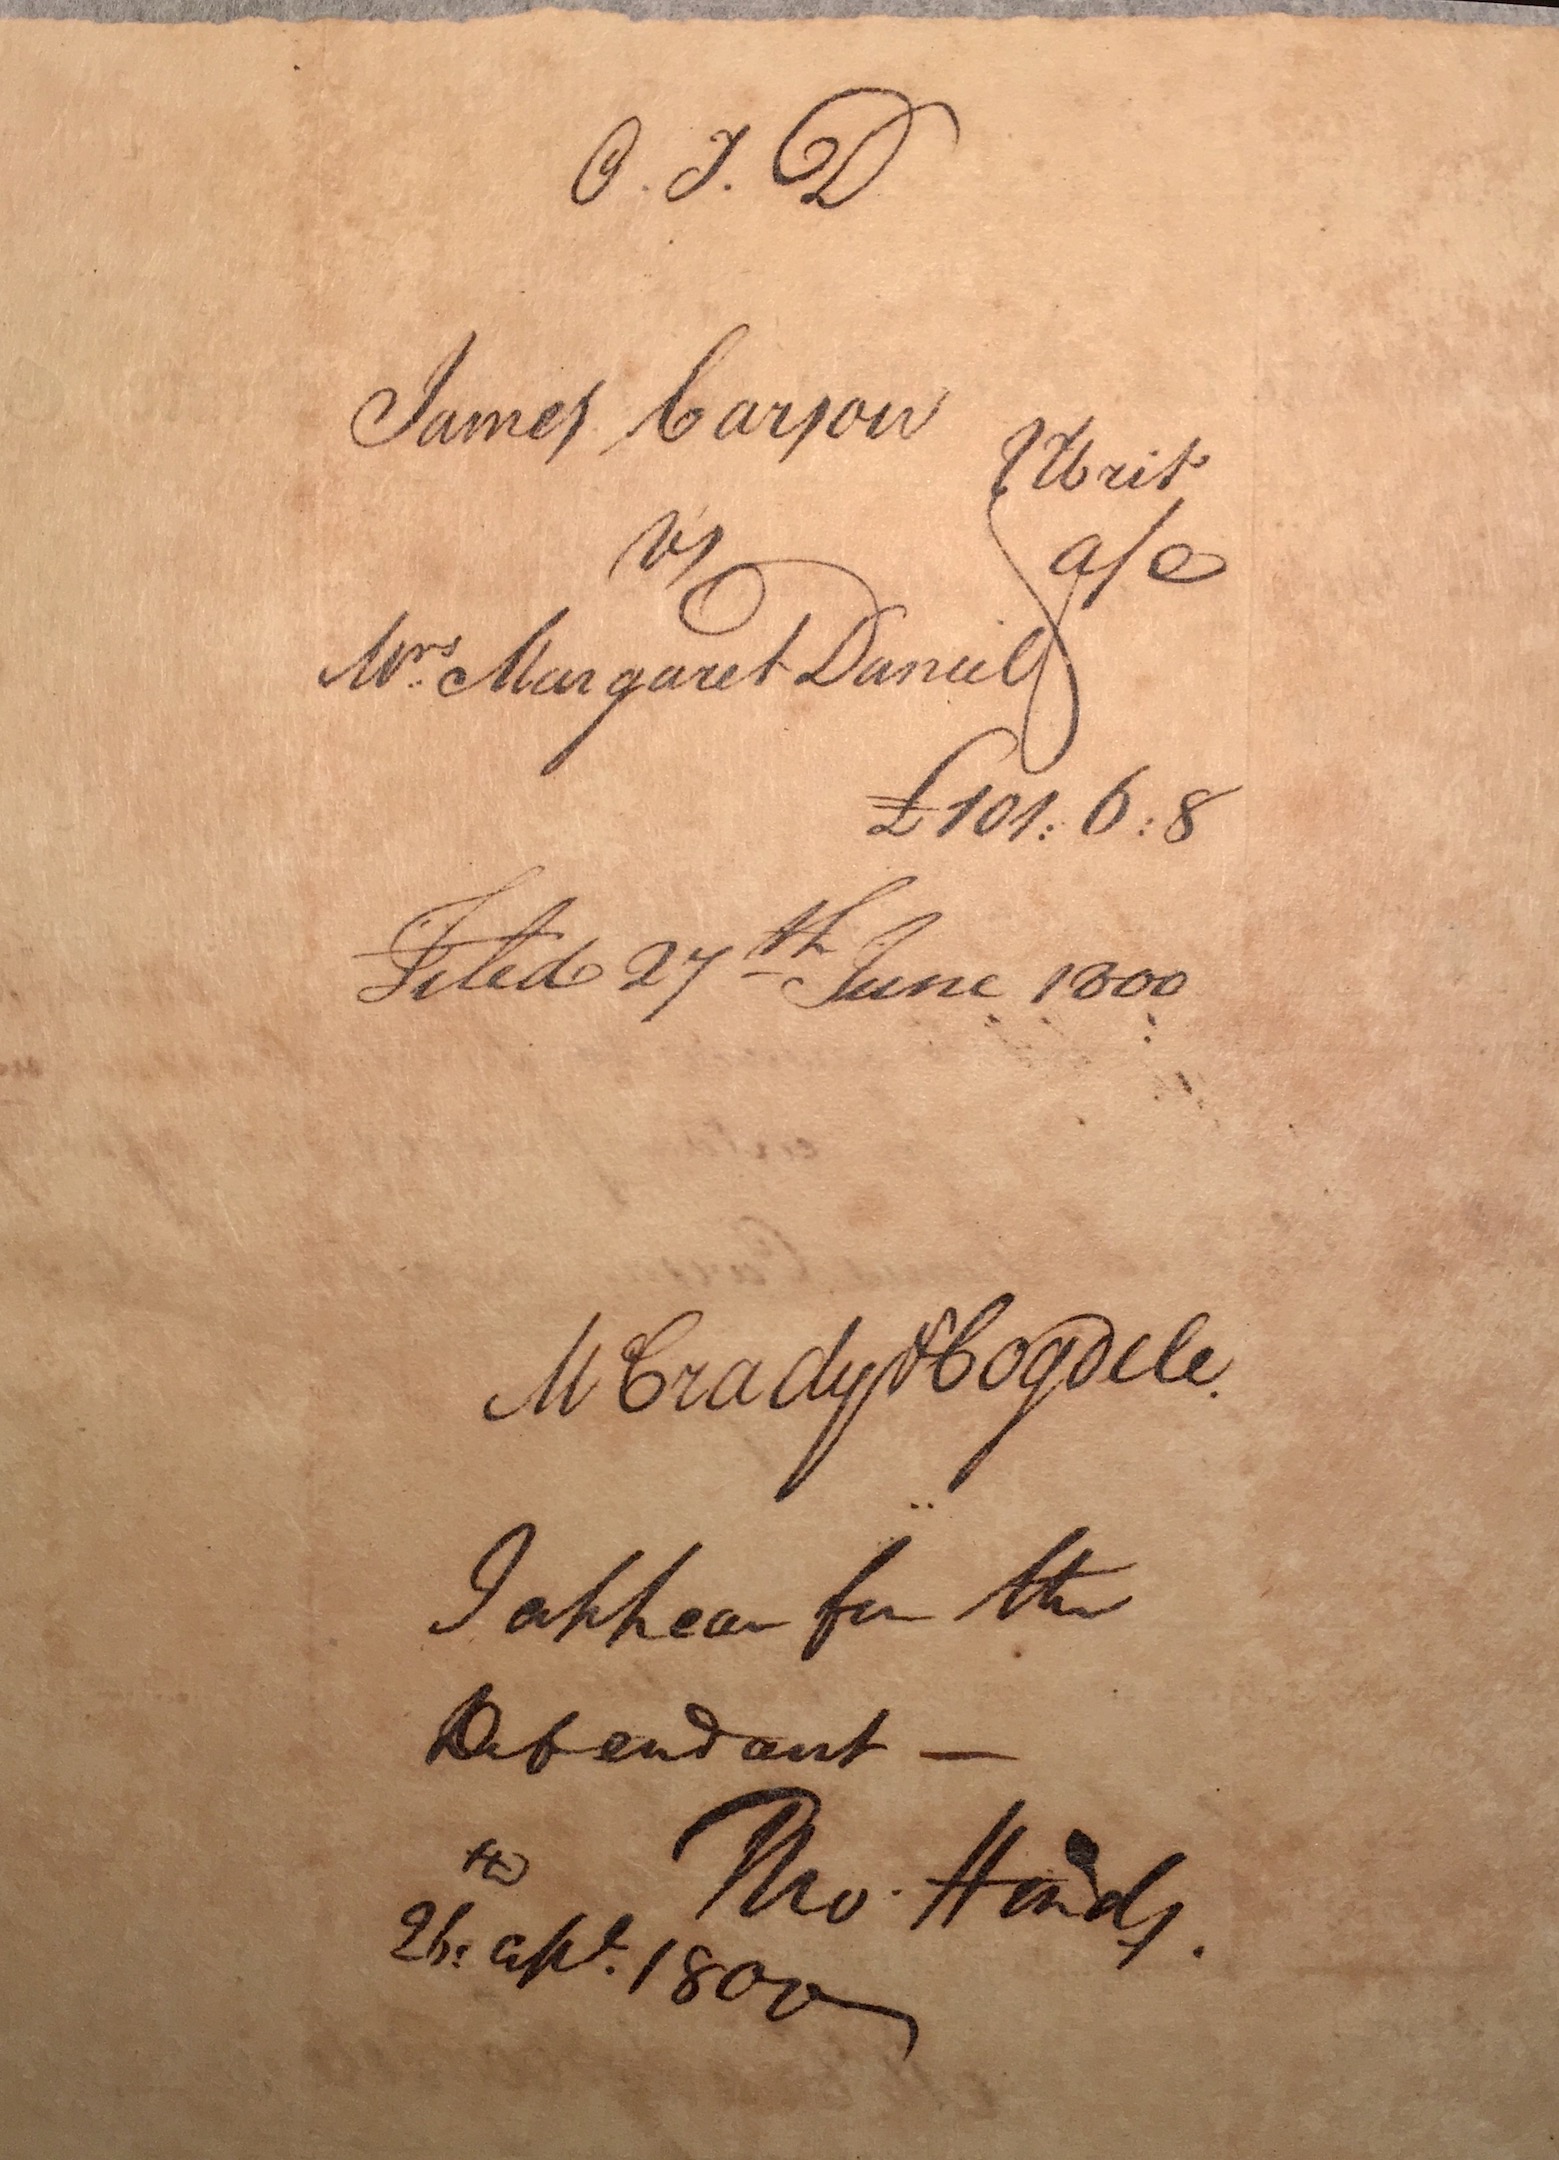 O. J. D
James Carson
vs
Writ
a/c
Mrs. Margaret Daniel
£101: 6: 8
Filed 27th June 1800
McCrady & Cogdell.
I appear for the
Defendant —
Tho. Hinds.
26th apl. 1800